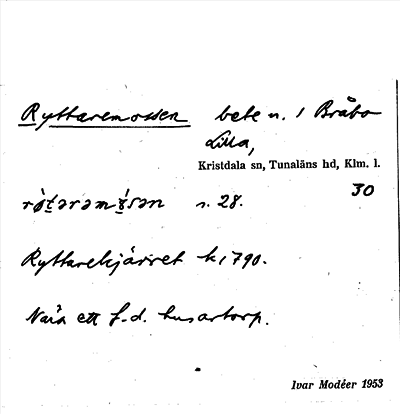 Ryttaremossen bete n. 1 Bråbo
Lilla,
Kristdala sn, Tunaläns hd, Klm. l.
30
s. 28.
Ryttarekjärret k 1790.
Nära ett f.d. husartorp.
Ivar Modéer 1953